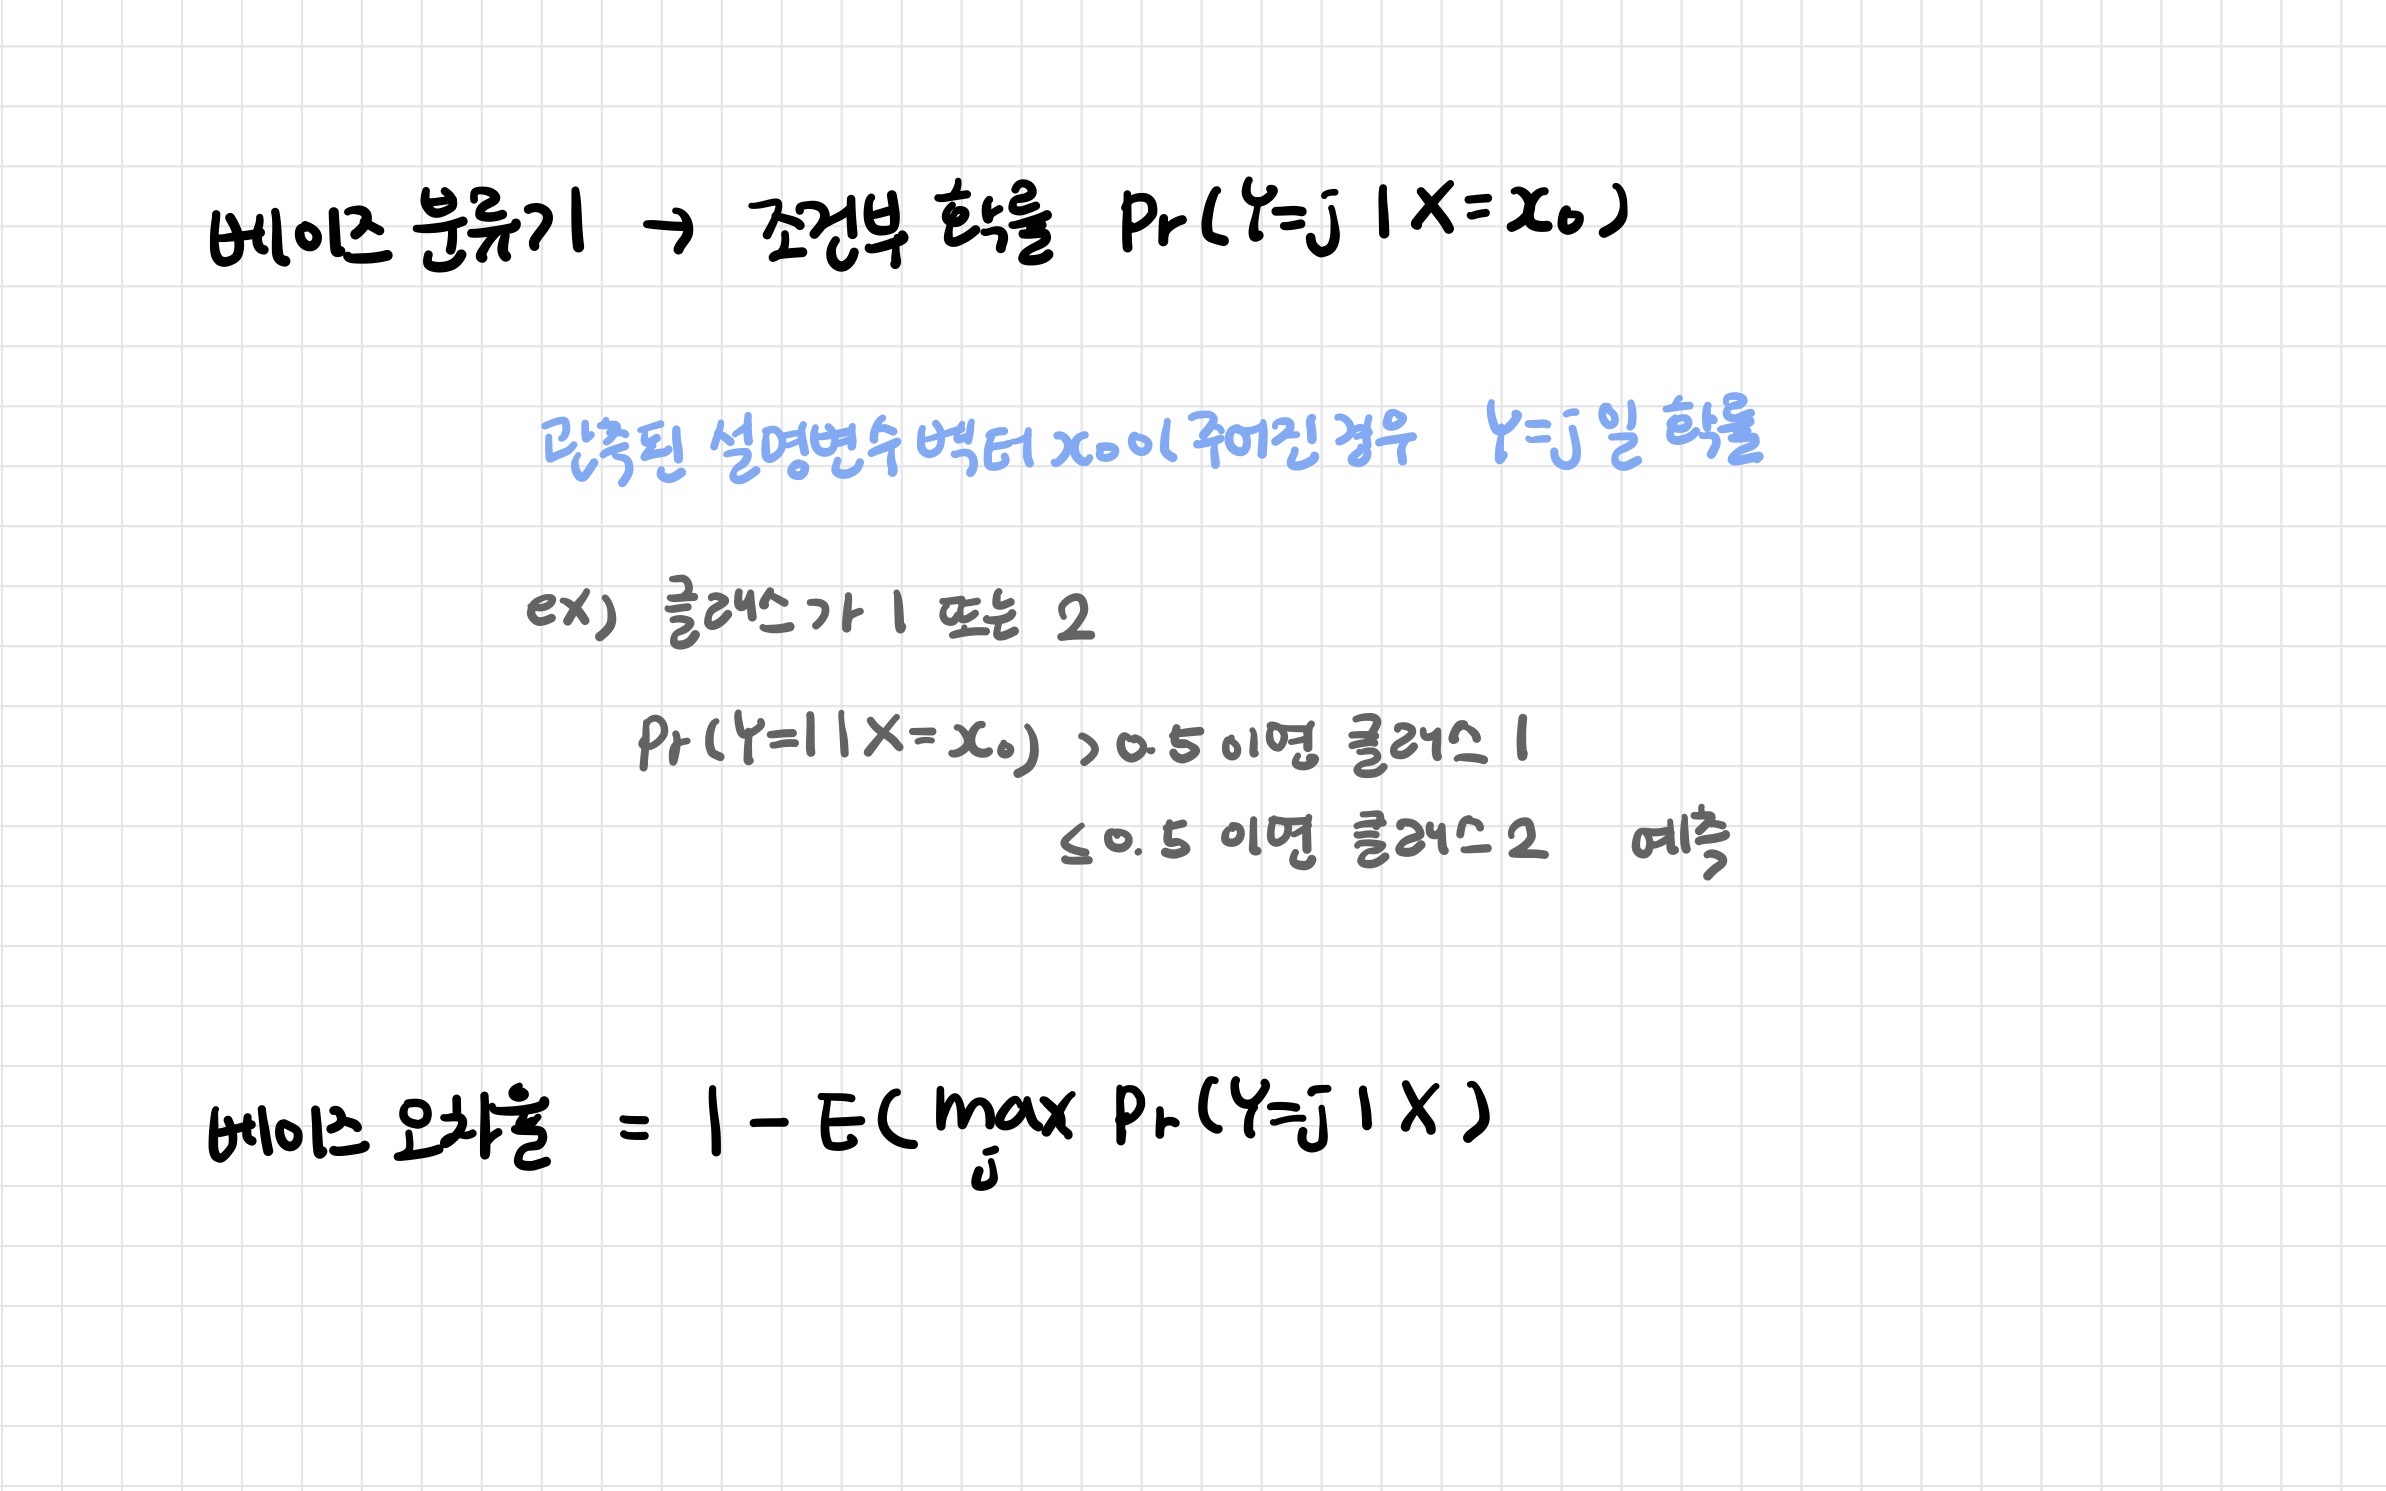 베이즈 분류기 → 조건부 확률 Pr(Y=j | X=x₀)
관측된 설명변수 벡터 x₀이 주어진 경우 Y=j일 확률
ex) 클래스가 1 또는 2
Pr(Y=1 | X=x₀) >0.5이면 클래스 1
≤0.5 이면 클래스 2 예측
베이즈 오차율 = 1 - E(max Pr(Y=j | X)
j